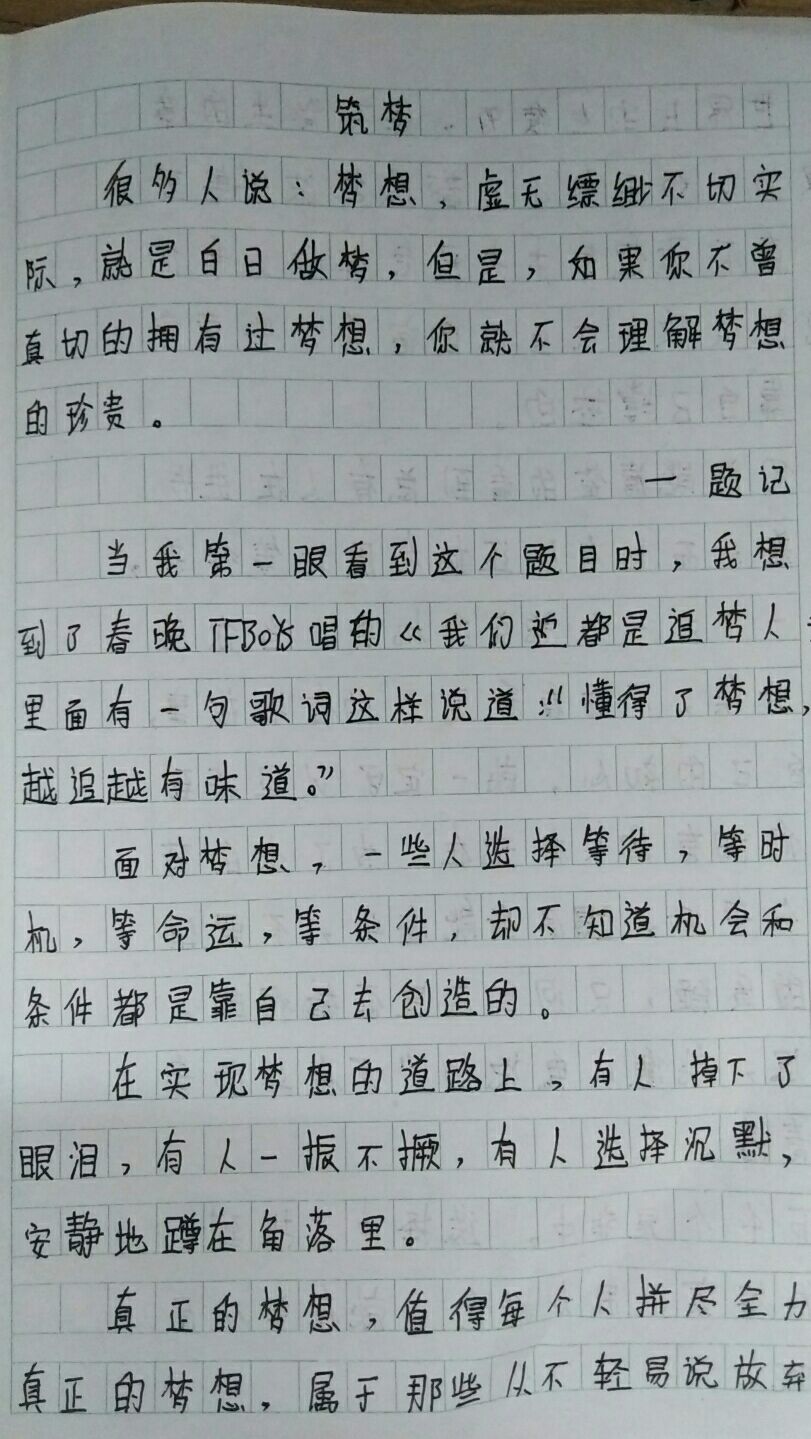 筑梦
很多人说：梦想，虚无缥缈不切实
际，就是白日做梦，但是，如果你不曾
真切的拥有过梦想，你就不会理解梦想
的珍贵。
一题记
当我第一眼看到这个题目时，我想
到了春晚TFBoys唱的《我们都是追梦人
里面有一句歌词这样说道：“懂得了梦想，
越追越有味道。”
面对梦想，一些人选择等待，等时
机，等命运，等条件，却不知道机会和
条件都是靠自己去创造的。
在实现梦想的道路上，有人掉下了
眼泪，有人一振不撅，有人选择沉默，
安静地蹲在角落里。
真正的梦想，值得每个人拼尽全力
真正的梦想，属于那些从不轻易说放弃